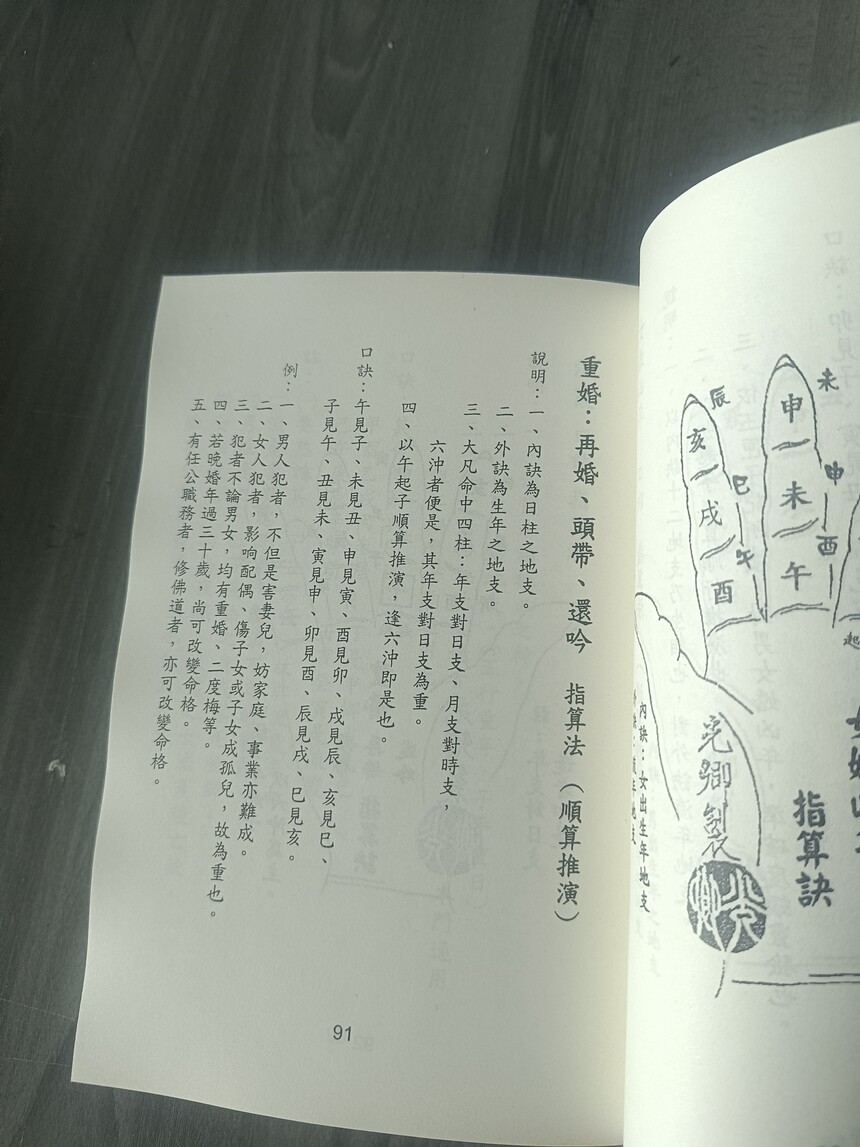 重婚：再婚、頭帶、還吟　指算法（順算推演）
說明：一、內訣為日柱之地支。
二、外訣為生年之地支。
三、大凡命中四柱：年支對日支、月支對時支，
六沖者便是，其年支對日支為重。
四、以午起子順算推演，逢六沖即是也。
口訣：午見子、未見丑、申見寅、酉見卯、戌見辰、亥見巳、
子見午、丑見未、寅見申、卯見酉、辰見戌、巳見亥。
例：一、男人犯者，不但是害妻兒，妨家庭、事業亦難成。
二、女人犯者，影响配偶、傷子女或子女成孤兒，故為重也。
三、犯者不論男女，均有重婚、二度梅等。
四、若晚婚年過三十歲，尚可改變命格。
五、有任公職務者，修佛道者，亦可改變命格。
91
未
申
酉
申
未
午
辰
巳
午
亥
戌
酉
起
指算訣
內訣：女出生年地支